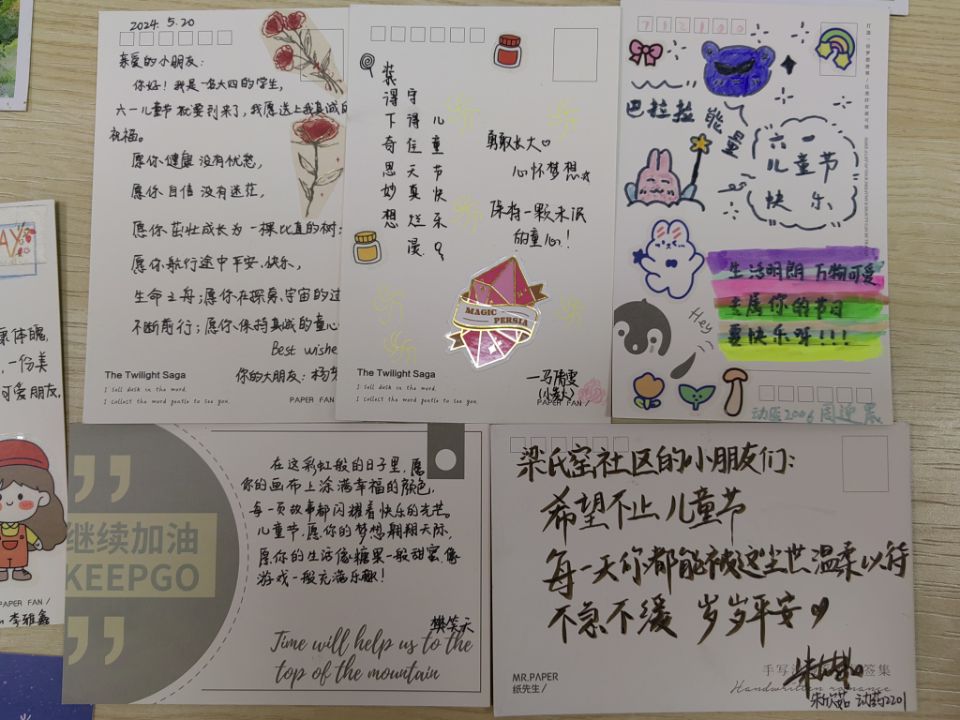 2024. 5.20
亲爱的小朋友:
你好!我是一名大四的学生,
六一儿童节就要到来了,我愿送上我真诚的
祝福。
愿你健康 没有忧愁,
愿你自信 没有迷茫,
愿你茁壮成长为一棵比直的树;
愿你航行途中平安、快乐,
生命之舟;愿你在探索宇宙的过
不断前行;愿你保持真诚的童心
Best wishe
你的大朋友:杨
The Twilight Saga
I sell dusk in the word.
I collect the word gentle to see you.
PAPER FAN
装下奇思妙想
守得住天真烂漫
儿童节快乐
勇敢长大
心怀梦想
保持一颗未泯
的童心!
MAGIC
PERSIA
The Twilight Saga
I sell dusk in the word.
I collect the word gentle to see you.
PAPER FAN /
巴拉拉能量
六一
儿童节
快乐
生活明朗 万物可爱
去属你的节日
要快乐呀!!!
Hey
动医2006 周迎
康体魄,
一份美
可爱朋友,
PAPER FAN /
李雅鑫
继续加油
KEEPGO
在这彩虹般的日子里,愿
你的画布上涂满幸福的颜色,
每一页故事都闪耀着快乐的光芒。
儿童节,愿你的梦想翱翔天际,
愿你的生活像糖果一般甜蜜,像
游戏一般充满乐趣!
樊笑天
Time will help us to the
top of the mountain
梁氏窑社区的小朋友们:
希望不止儿童节
每一天你都能被这尘世温柔以待
不急不缓 岁岁平安
MR.PAPER
纸先生/
手写
签集
Handwritten romance
2201